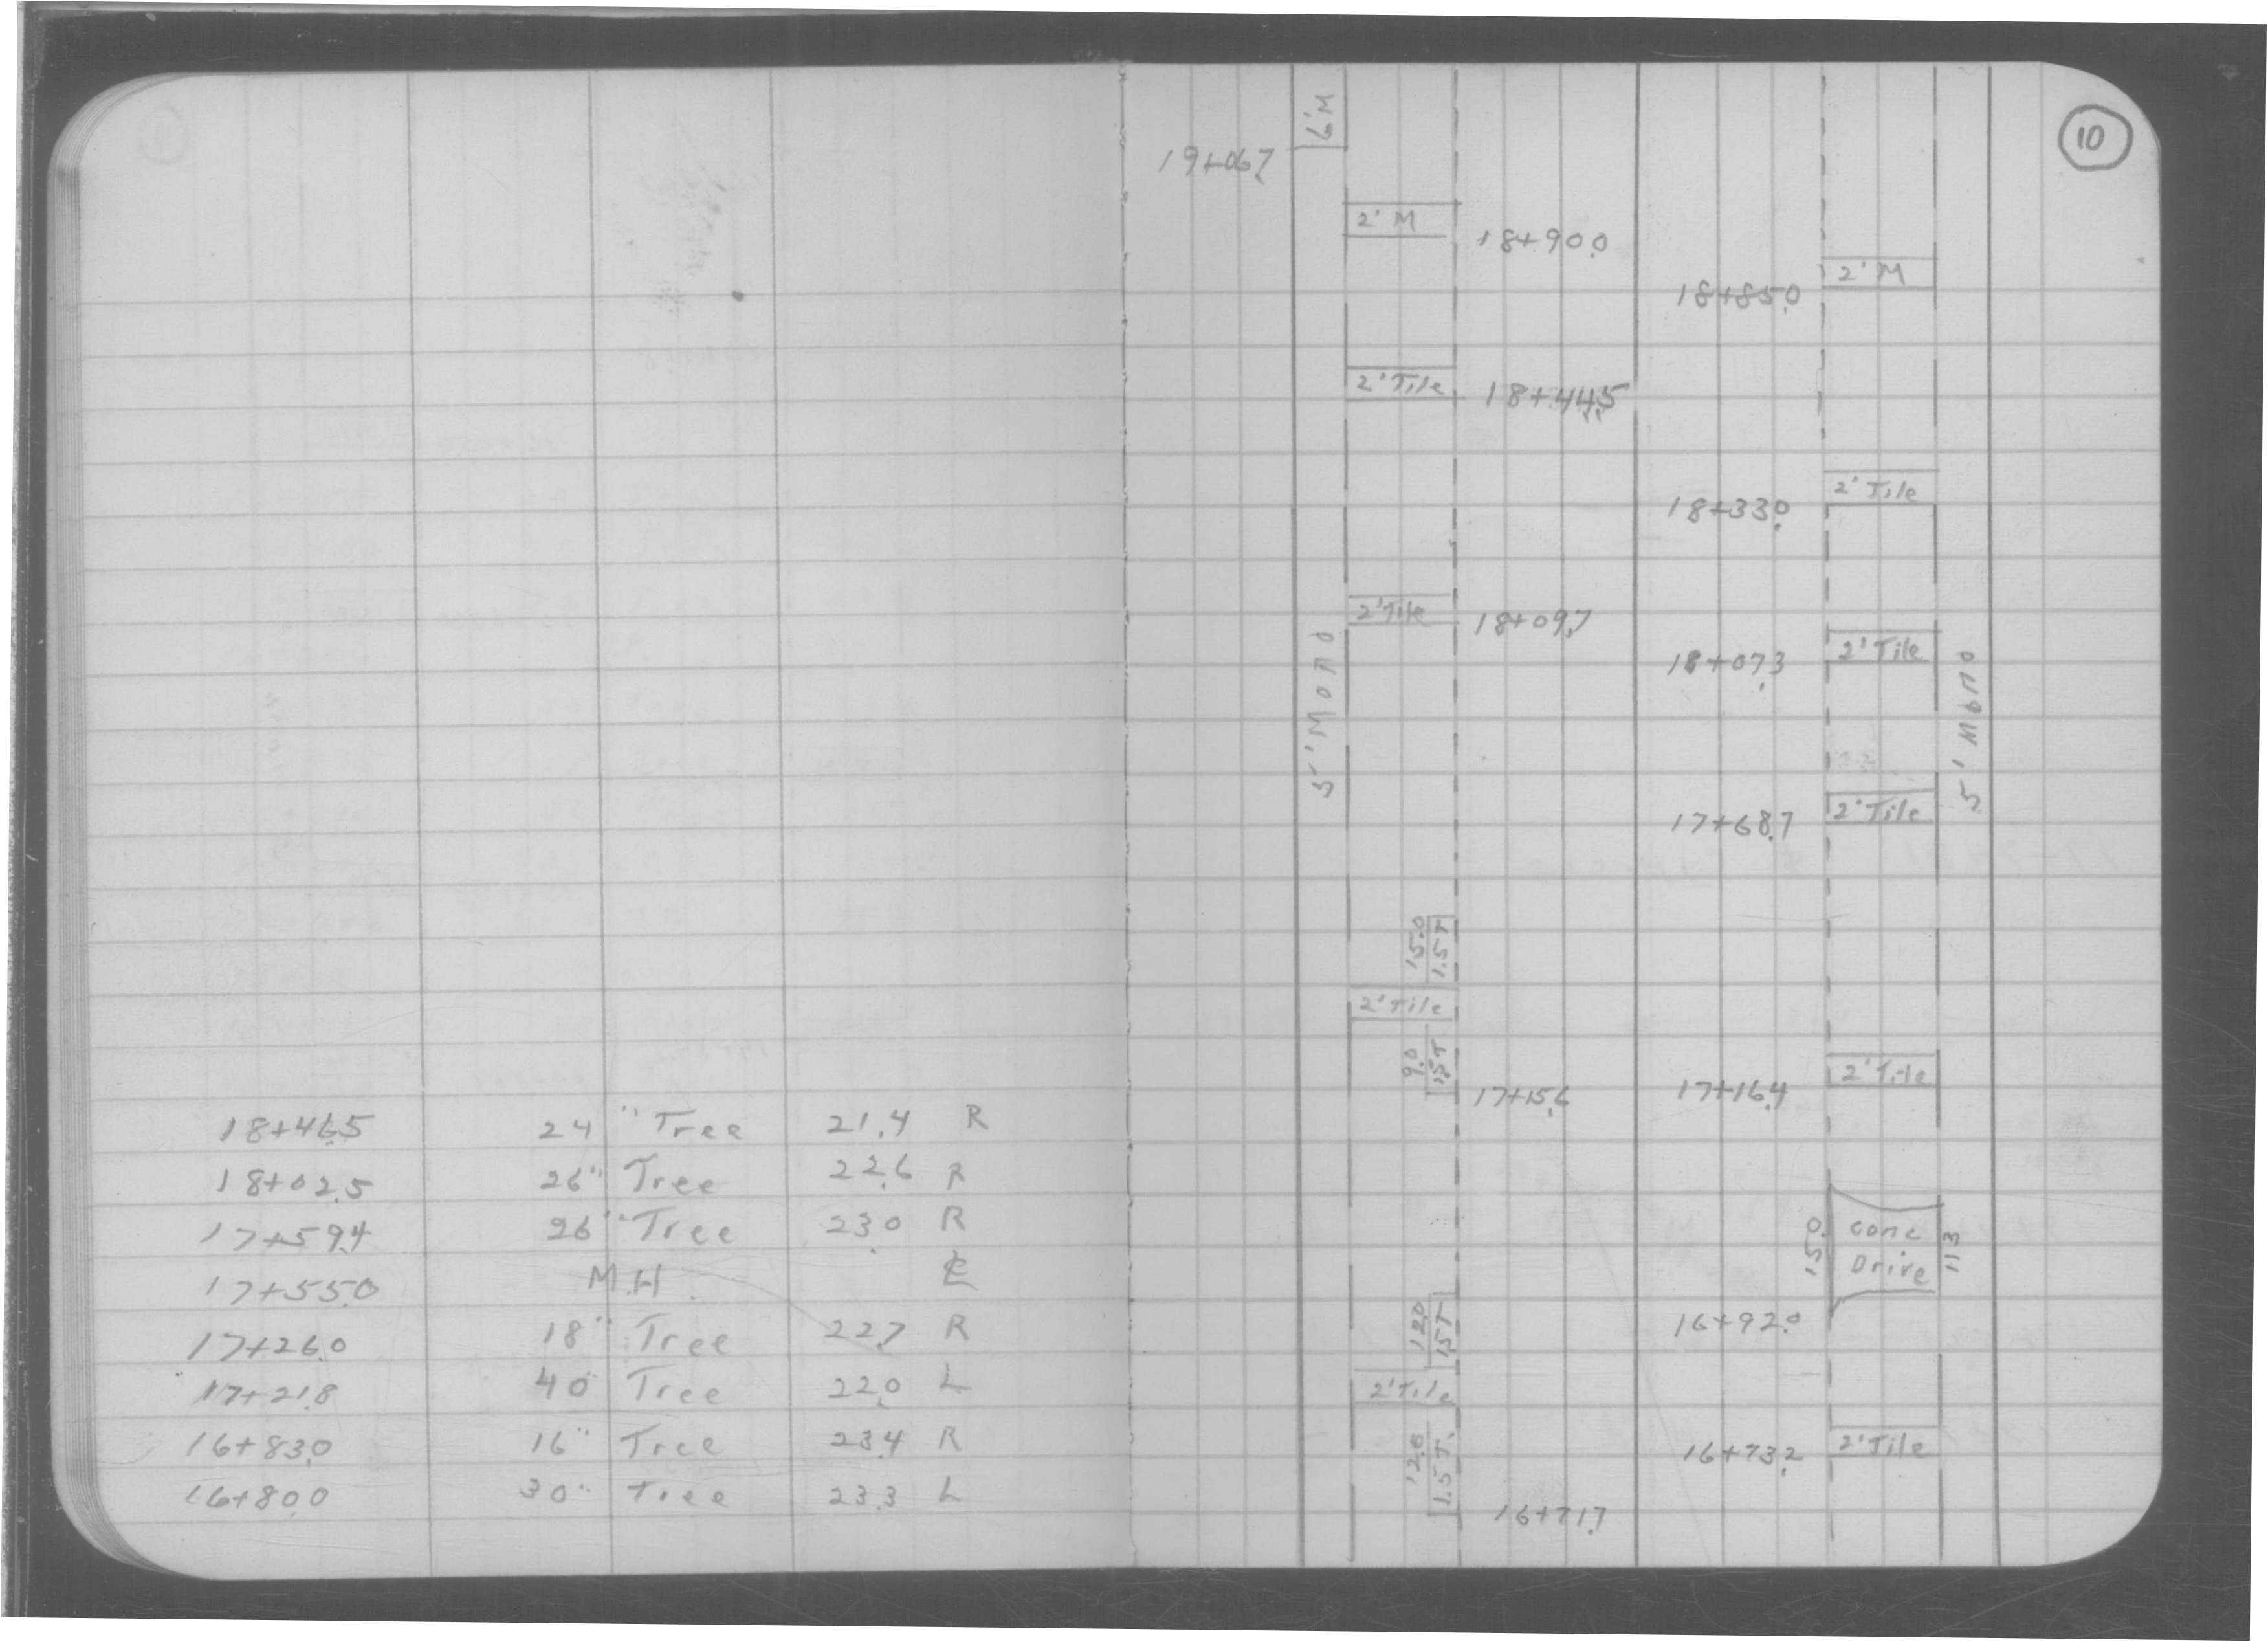 18+46.5 24" Tree 21.4 R
18+02.5 26" Tree 22.6 R
17+59.4 26" Tree 23.0 R
17+55.0 M.H. ℄
17+26.0 18" Tree 22.7 R
17+21.8 40 Tree 22.0 L
16+83.0 16" Tree 23.4 R
16+80.0 30" Tree 23.3 L
10
6'M
19+06.7
2' M
18+90.0
2' M
18+85.0
2' Tile
18+44.5
2' Tile
18+33.0
2' Tile
18+09.7
2' Tile
18+07.3
5' Mono
5' Mono
2' Tile
17+68.7
15.0
1.5T
2' Tile
9.0
1.5T
17+15.6
2' Tile
17+16.4
15.0
Conc
Drive
11.3
16+92.0
12.0
1.5T
2' Tile
2' Tile
16+73.2
1.5T.
16+71.7